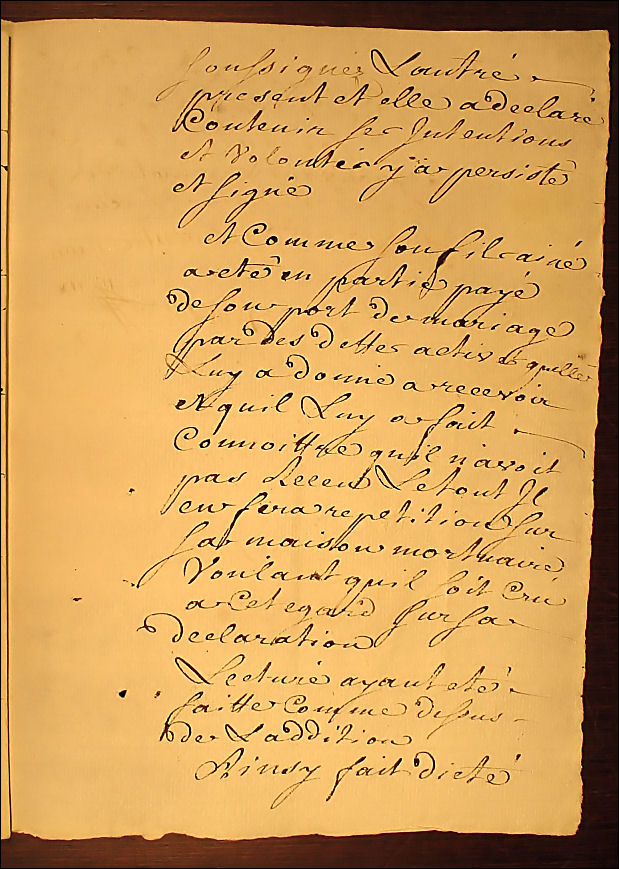 soussignés L'autre
present et elle a declaré
Contenir ses Intentions
et Volontés y a persisté
et signé
et Comme son fils ainé
a eté en partie payé
de son port de mariage
par des dettes actives quelle
Luy a donné a recevoir
et quil Luy a fait
Connoittre quil n'avoit
pas Receu Le tout Il
en fera repetition sur
sa maison mortuaire
Voulant quil soit Cru
a Cet egard sur sa
declaration
Lecture ayant eté
faitte Comme dessus
de L'addition
Ainsy fait dicté